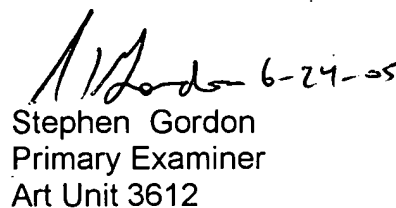 S Gordon 6-24-05
Stephen Gordon
Primary Examiner
Art Unit 3612